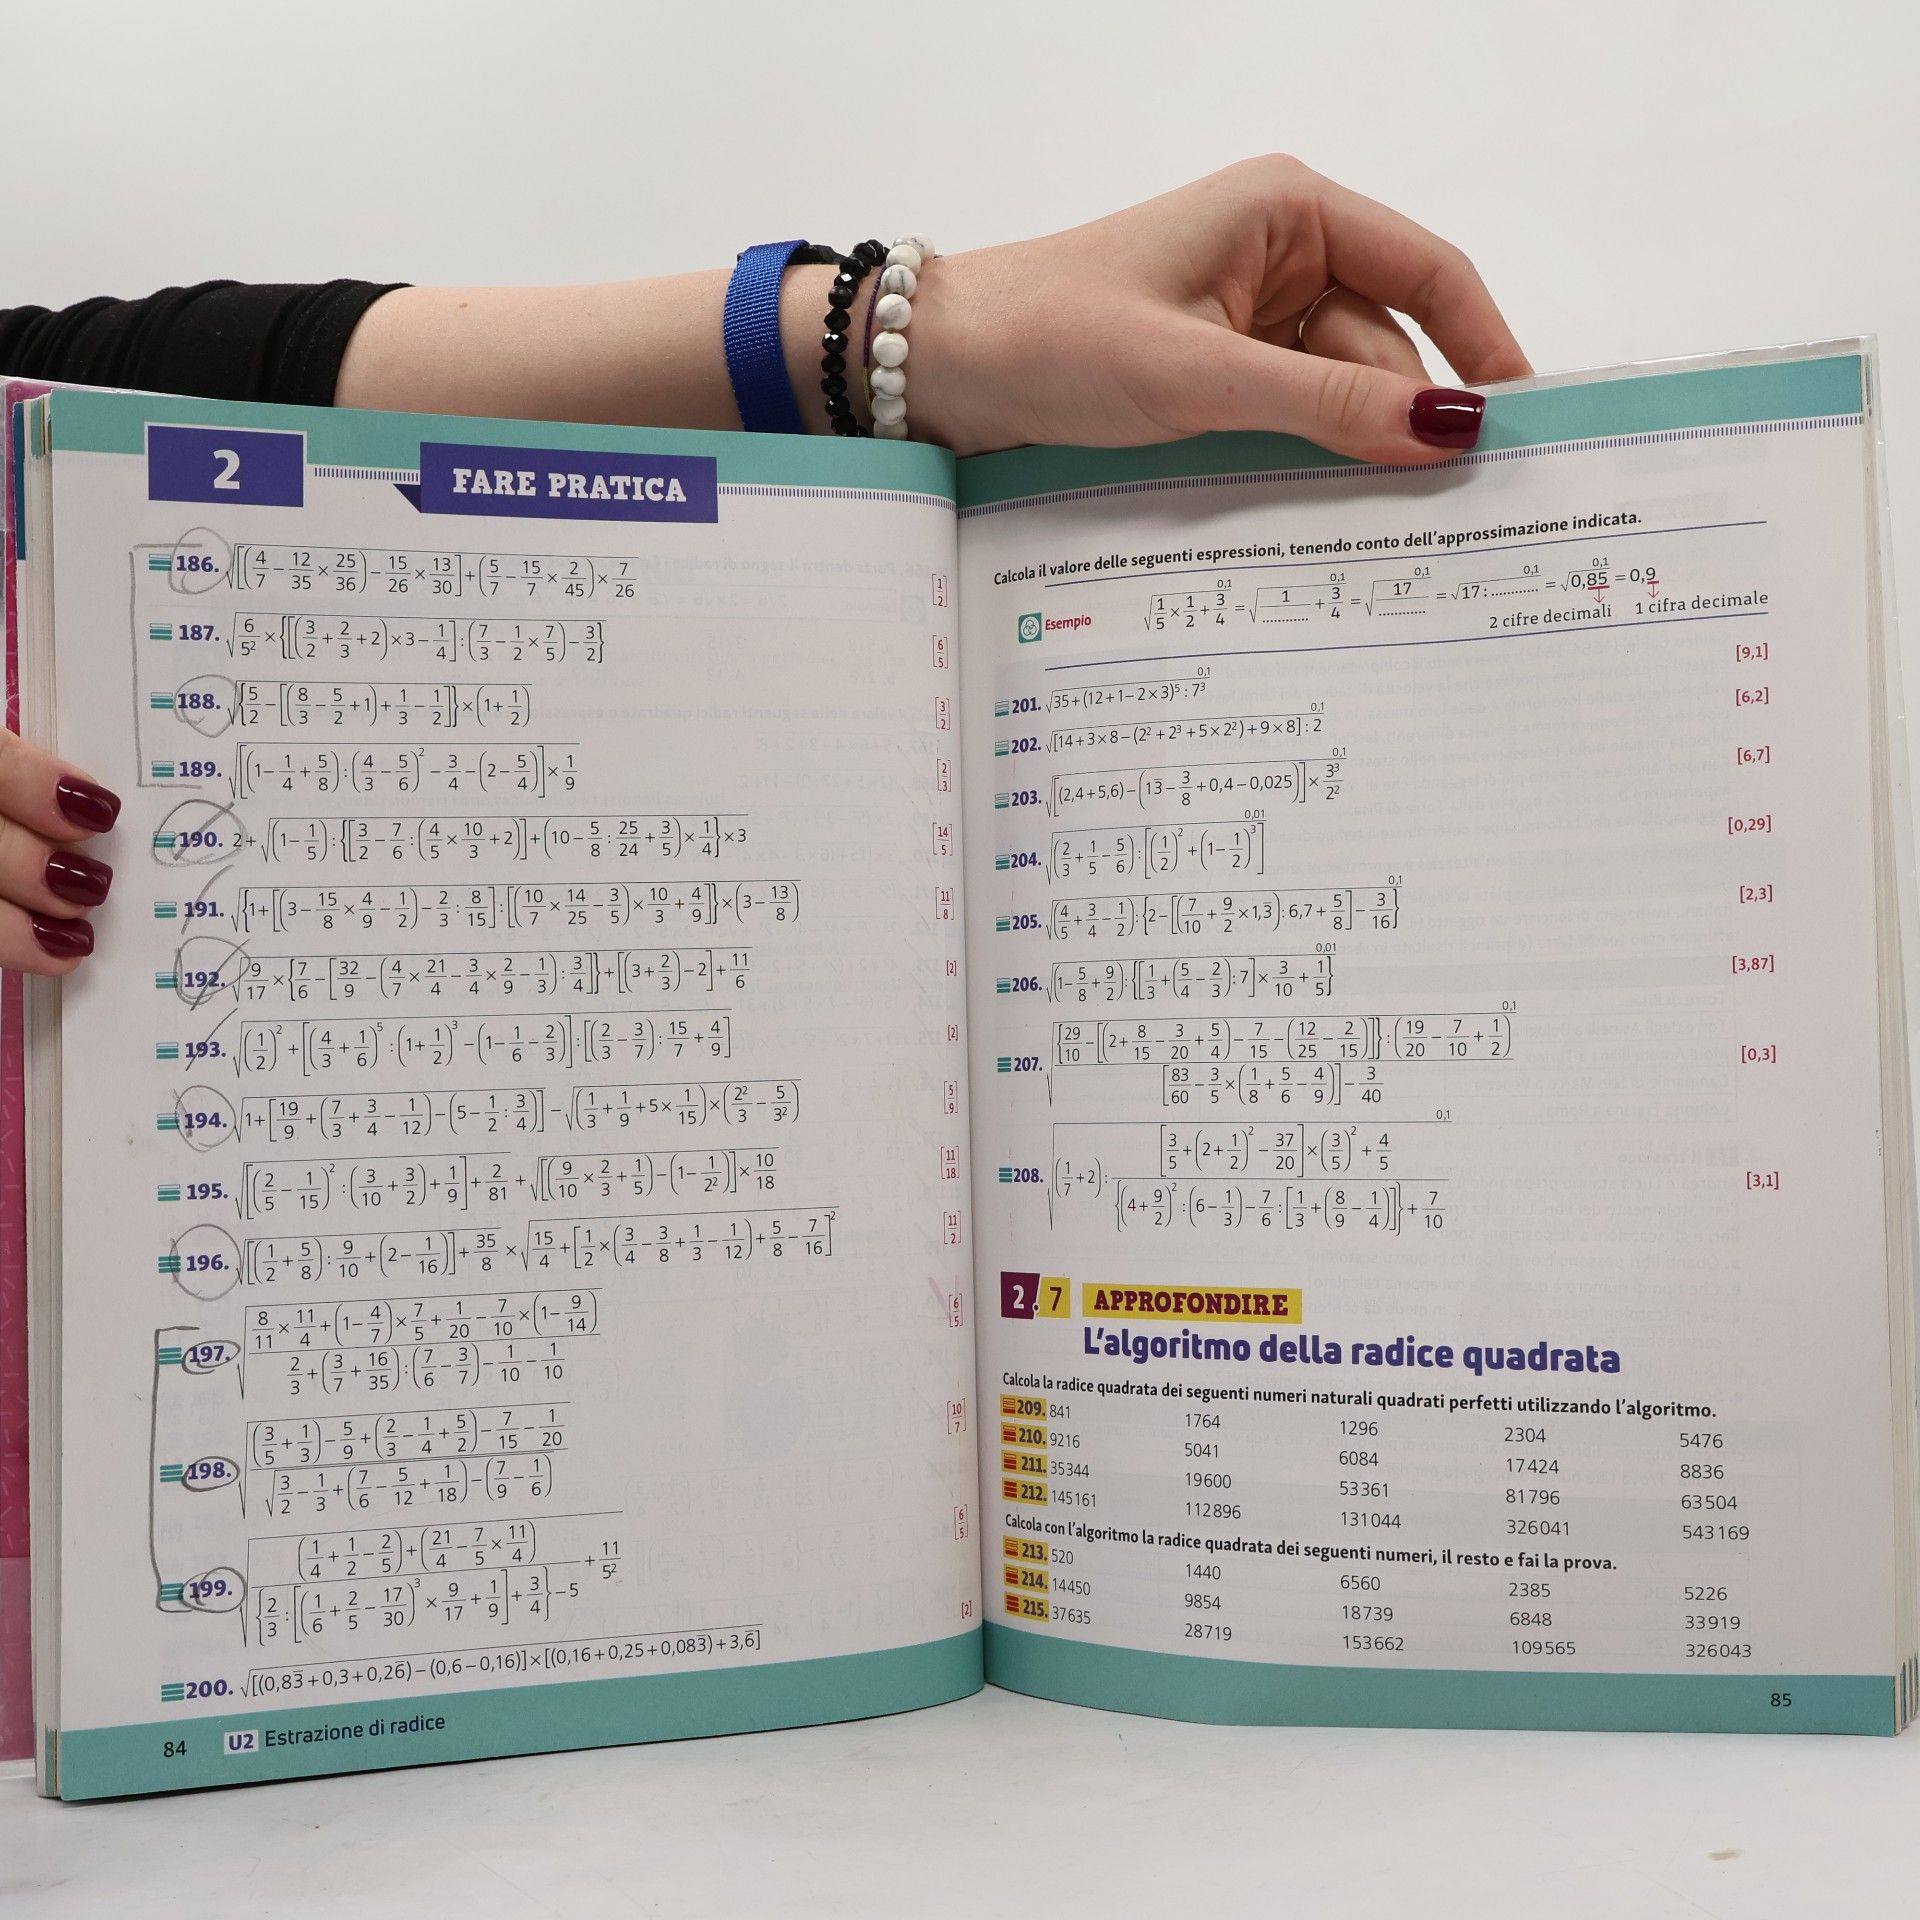 2
FARE PRATICA
186. √[(4/7 − 12/35 × 25/36) − 15/26 × 13/30] + (5/7 − 15/7 × 2/45) × 7/26 [1/2]
187. √6/5² × {[(3/2 + 2/3 + 2) × 3 − 1/4] : (7/3 − 1/2 × 7/5) − 3/2} [6/5]
188. √{5/2 − [(8/3 − 5/2 + 1) + 1/3 − 1/2]} × (1 + 1/2) [3/2]
189. √[(1 − 1/4 + 5/8) : (4/3 − 5/6)² − 3/4 − (2 − 5/4)] × 1/9 [2/3]
190. 2 + √(1 − 1/5) : {[3/2 − 7/6 : (4/5 × 10/3 + 2)] + (10 − 5/8 : 25/24 + 3/5) × 1/4} × 3 [14/5]
191. √{1 + [(3 − 15/8 × 4/9 − 1/2) − 2/3 : 8/15] : [(10/7 × 14/25 − 3/5) × 10/3 + 4/9]} × (3 − 13/8) [11/8]
192. √9/17 × {7/6 − [32/9 − (4/7 × 21/4 − 3/4 × 2/9 − 1/3) : 3/4]} + [(3 + 2/3) − 2] + 11/6 [2]
193. √(1/2)² + [(4/3 + 1/6)⁵ : (1 + 1/2)³ − (1 − 1/6 − 2/3)] : [(2/3 − 3/7) : 15/7 + 4/9] [2]
194. √1 + [19/9 + (7/3 + 3/4 − 1/12) − (5 − 1/2 : 3/4)] − √(1/3 + 1/9 + 5 × 1/15) × (2²/3 − 5/3²) [5/9]
195. √[(2/5 − 1/15)² : (3/10 + 3/2) + 1/9] + 2/81 + √[(9/10 × 2/3 + 1/5) − (1 − 1/2²)] × 10/18 [11/18]
196. √[(1/2 + 5/8) : 9/10 + (2 − 1/16)] + 35/8 × √15/4 + [1/2 × (3/4 − 3/8 + 1/3 − 1/12) + 5/8 − 7/16]² [11/2]
197. √(8/11 × 11/4 + (1 − 4/7) × 7/5 + 1/20 − 7/10 × (1 − 9/14)) / (2/3 + (3/7 + 16/35) : (7/6 − 3/7) − 1/10 − 1/10) [6/5]
198. √((3/5 + 1/3) − 5/9 + (2/3 − 1/4 + 5/2) − 7/15 − 1/20) / √(3/2 − 1/3 + (7/6 − 5/12 + 1/18) − (7/9 − 1/6)) [10/7]
199. √((1/4 + 1/2 − 2/5) + (21/4 − 7/5 × 11/4)) / ({2/3 : [(1/6 + 2/5 − 17/30)³ × 9/17 + 1/9] + 3/4} − 5) + 11/5² [6/5]
200. √[(0,83̅ + 0,3 + 0,26̅) − (0,6 − 0,16)] × [(0,16 + 0,25 + 0,083̅) + 3,6̅] [2]
84 U2 Estrazione di radice
Calcola il valore delle seguenti espressioni, tenendo conto dell'approssimazione indicata.
Esempio √1/5 × 1/2 + 3/4 0,1 = √1/............ + 3/4 0,1 = √17/............ 0,1 = √17 : ............ 0,1 = √0,85 0,1 = 0,9
2 cifre decimali 1 cifra decimale
201. √35 + (12 + 1 − 2 × 3)⁵ : 7³ 0,1 [9,1]
202. √[14 + 3 × 8 − (2² + 2³ + 5 × 2²) + 9 × 8] : 2 0,1 [6,2]
203. √[(2,4 + 5,6) − (13̅ − 3/8 + 0,4 − 0,025)] × 3³/2² 0,1 [6,7]
204. √(2/3 + 1/5 − 5/6) : [(1/2)² + (1 − 1/2)³] 0,01 [0,29]
205. √(4/5 + 3/4 − 1/2) : {2 − [(7/10 + 9/2 × 1,3̅) : 6,7 + 5/8] − 3/16} 0,1 [2,3]
206. √(1 − 5/8 + 9/2) : {[1/3 + (5/4 − 2/3) : 7] × 3/10 + 1/5} 0,01 [3,87]
207. √({29/10 − [(2 + 8/15 − 3/20 + 5/4) − 7/15 − (12/25 − 2/15)]} : (19/20 − 7/10 + 1/2)) / ([83/60 − 3/5 × (1/8 + 5/6 − 4/9)] − 3/40) 0,1 [0,3]
208. √(1/7 + 2) : ([3/5 + (2 + 1/2)² − 37/20] × (3/5)² + 4/5) / ({(4 + 9/2)² : (6 − 1/3) − 7/6 : [1/3 + (8/9 − 1/4)]} + 7/10) 0,1 [3,1]
2.7 APPROFONDIRE
L'algoritmo della radice quadrata
Calcola la radice quadrata dei seguenti numeri naturali quadrati perfetti utilizzando l'algoritmo.
209. 841 1764 1296 2304 5476
210. 9216 5041 6084 17424 8836
211. 35344 19600 53361 81796 63504
212. 145161 112896 131044 326041 543169
Calcola con l'algoritmo la radice quadrata dei seguenti numeri, il resto e fai la prova.
213. 520 1440 6560 2385 5226
214. 14450 9854 18739 6848 33919
215. 37635 28719 153662 109565 326043
85